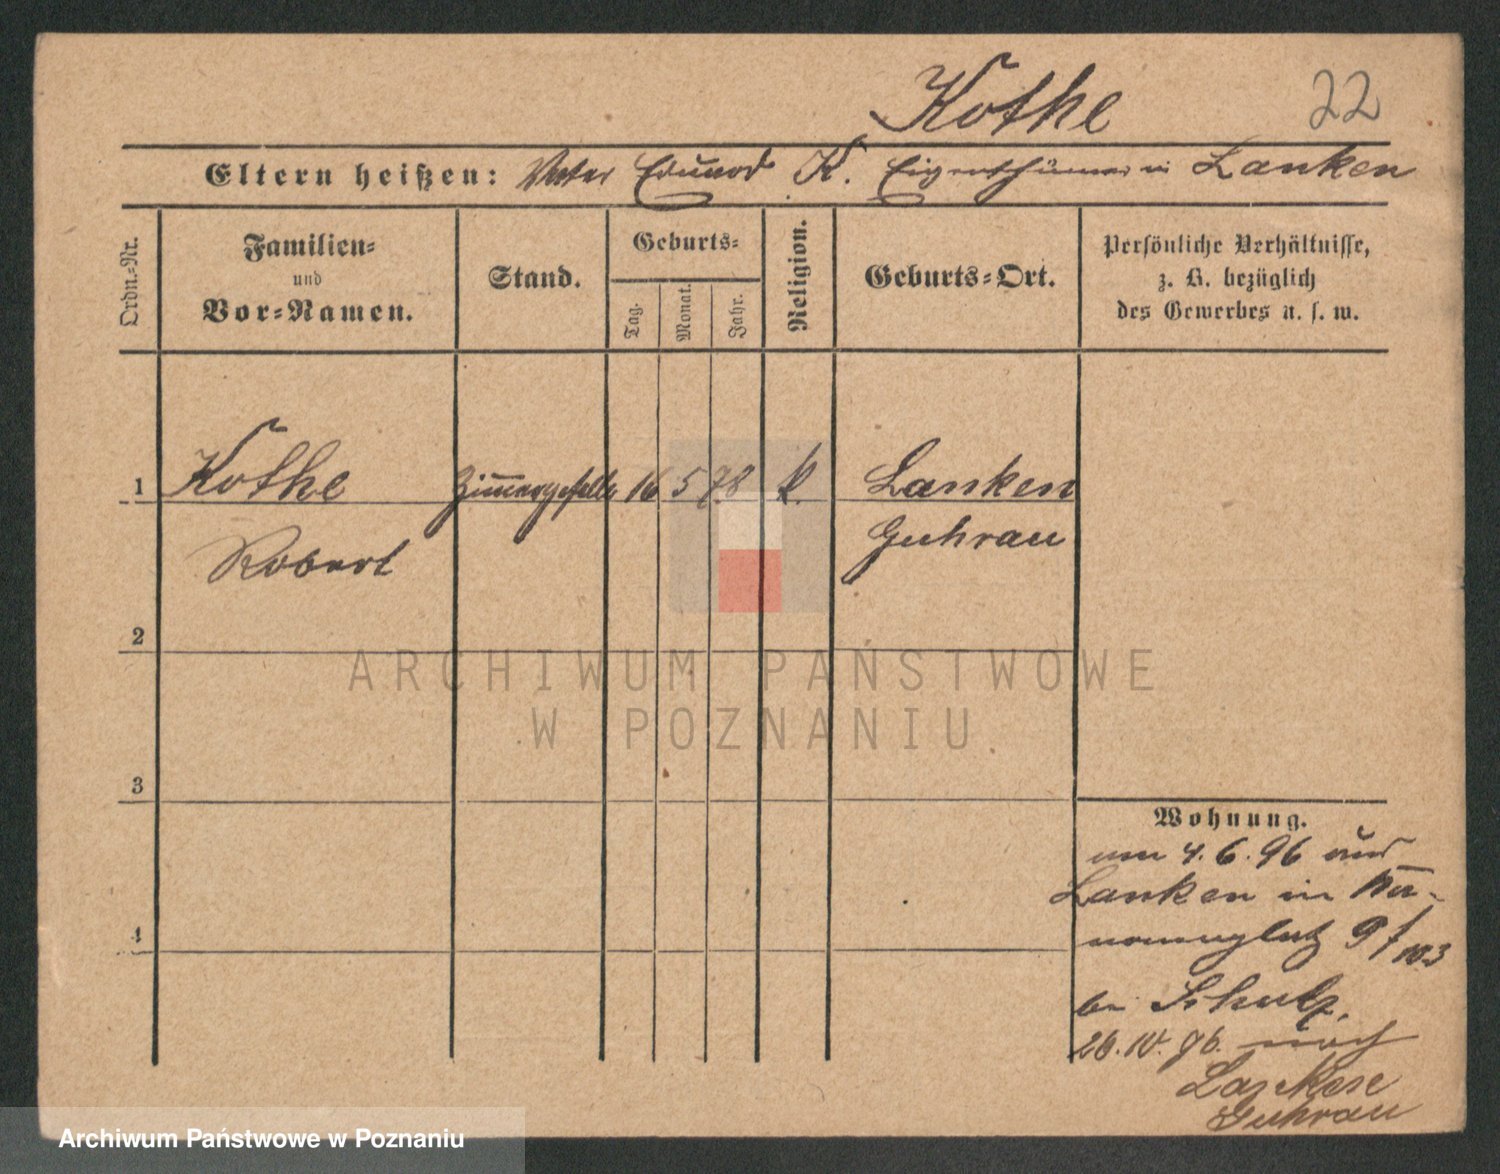 Kothe 22
Eltern heißen: Vater Eduard K. Eigenthümer in Lanken
Ordn.-Nr.
Familien-
und
Vor-Namen.
Stand.
Geburts-
Tag.
Monat.
Jahr.
Religion.
Geburts-Ort.
Persönliche Verhältnisse,
z. B. bezüglich
des Gewerbes u. s. w.
1 Kothe Zimmergeselle 16 5 78 k. Lanken
Robert Guhrau
2
ARCHIWUM PAŃSTWOWE
W POZNANIU
3
Wohnung.
am 4.6.96 aus
Lanken in
4
bei Schulz.
26. 96. nach
Guhrau
Archiwum Państwowe w Poznaniu